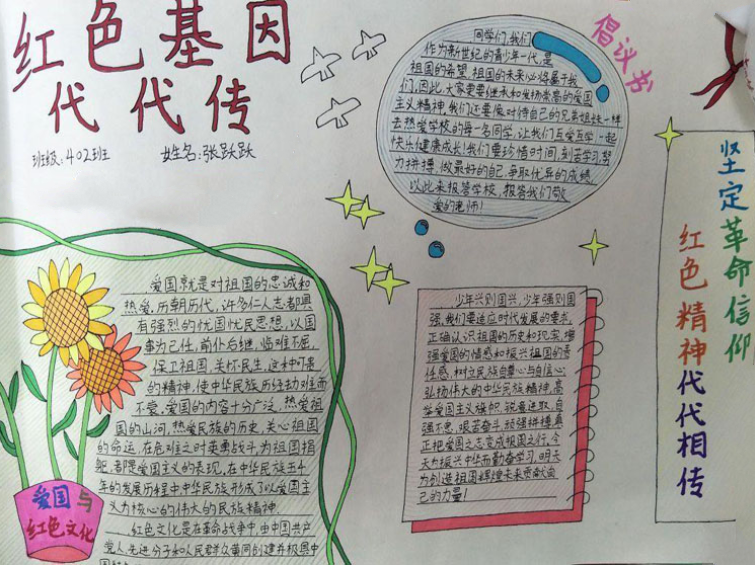 红色基因
代代传
班级:402班 姓名:张跃跃
倡议书
同学们,我们
作为新世纪的青少年一代,是
祖国的希望,祖国的未来必将属于我
们,因此,大家更要继承和发扬崇高的爱国
主义精神,我们还要像对待自己的兄弟姐妹一样
去热爱学校的每一名同学,让我们互爱互学一起
快乐健康成长!我们要珍惜时间,刻苦学习,努
力拼搏,做最好的自己,争取优异的成绩,
以此来报答学校,报答我们敬
爱的老师!
爱国就是对祖国的忠诚和
热爱,历朝历代,许多仁人志都具
有强烈的忧国忧民思想,以国
事为己任,前仆后继,临难不屈,
保卫祖国,关怀民生,这种可贵
的精神,使中华民族历经劫难而
不衰,爱国的内容十分广泛,热爱祖
国的山河,热爱民族的历史,关心祖国
的命运,在危难之时英勇战斗,为祖国捐
躯,都是爱国主义的表现,在中华民族五千
年的发展历程中,中华民族形成了以爱国主
义为核心的伟大的民族精神.
红色文化是在革命战争中,由中国共产
党人,先进分子和人民群众共同创建并极具中
爱国与
红色文化
少年兴则国兴,少年强则国
强,我们要适应时代发展的要求,
正确认识祖国的历史和现实,增
强爱国的情感和振兴祖国的责
任感,树立民族自尊心与自信心;
弘扬伟大的中华民族精神,高
举爱国主义旗帜,锐意进取,自
强不息,艰苦奋斗,顽强拼搏,真
正把爱国之志变成报国之行,今
天为振兴中华而勤奋学习,明天
为创造祖国辉煌未来贡献自
己的力量!
坚定革命信仰
红色精神代代相传